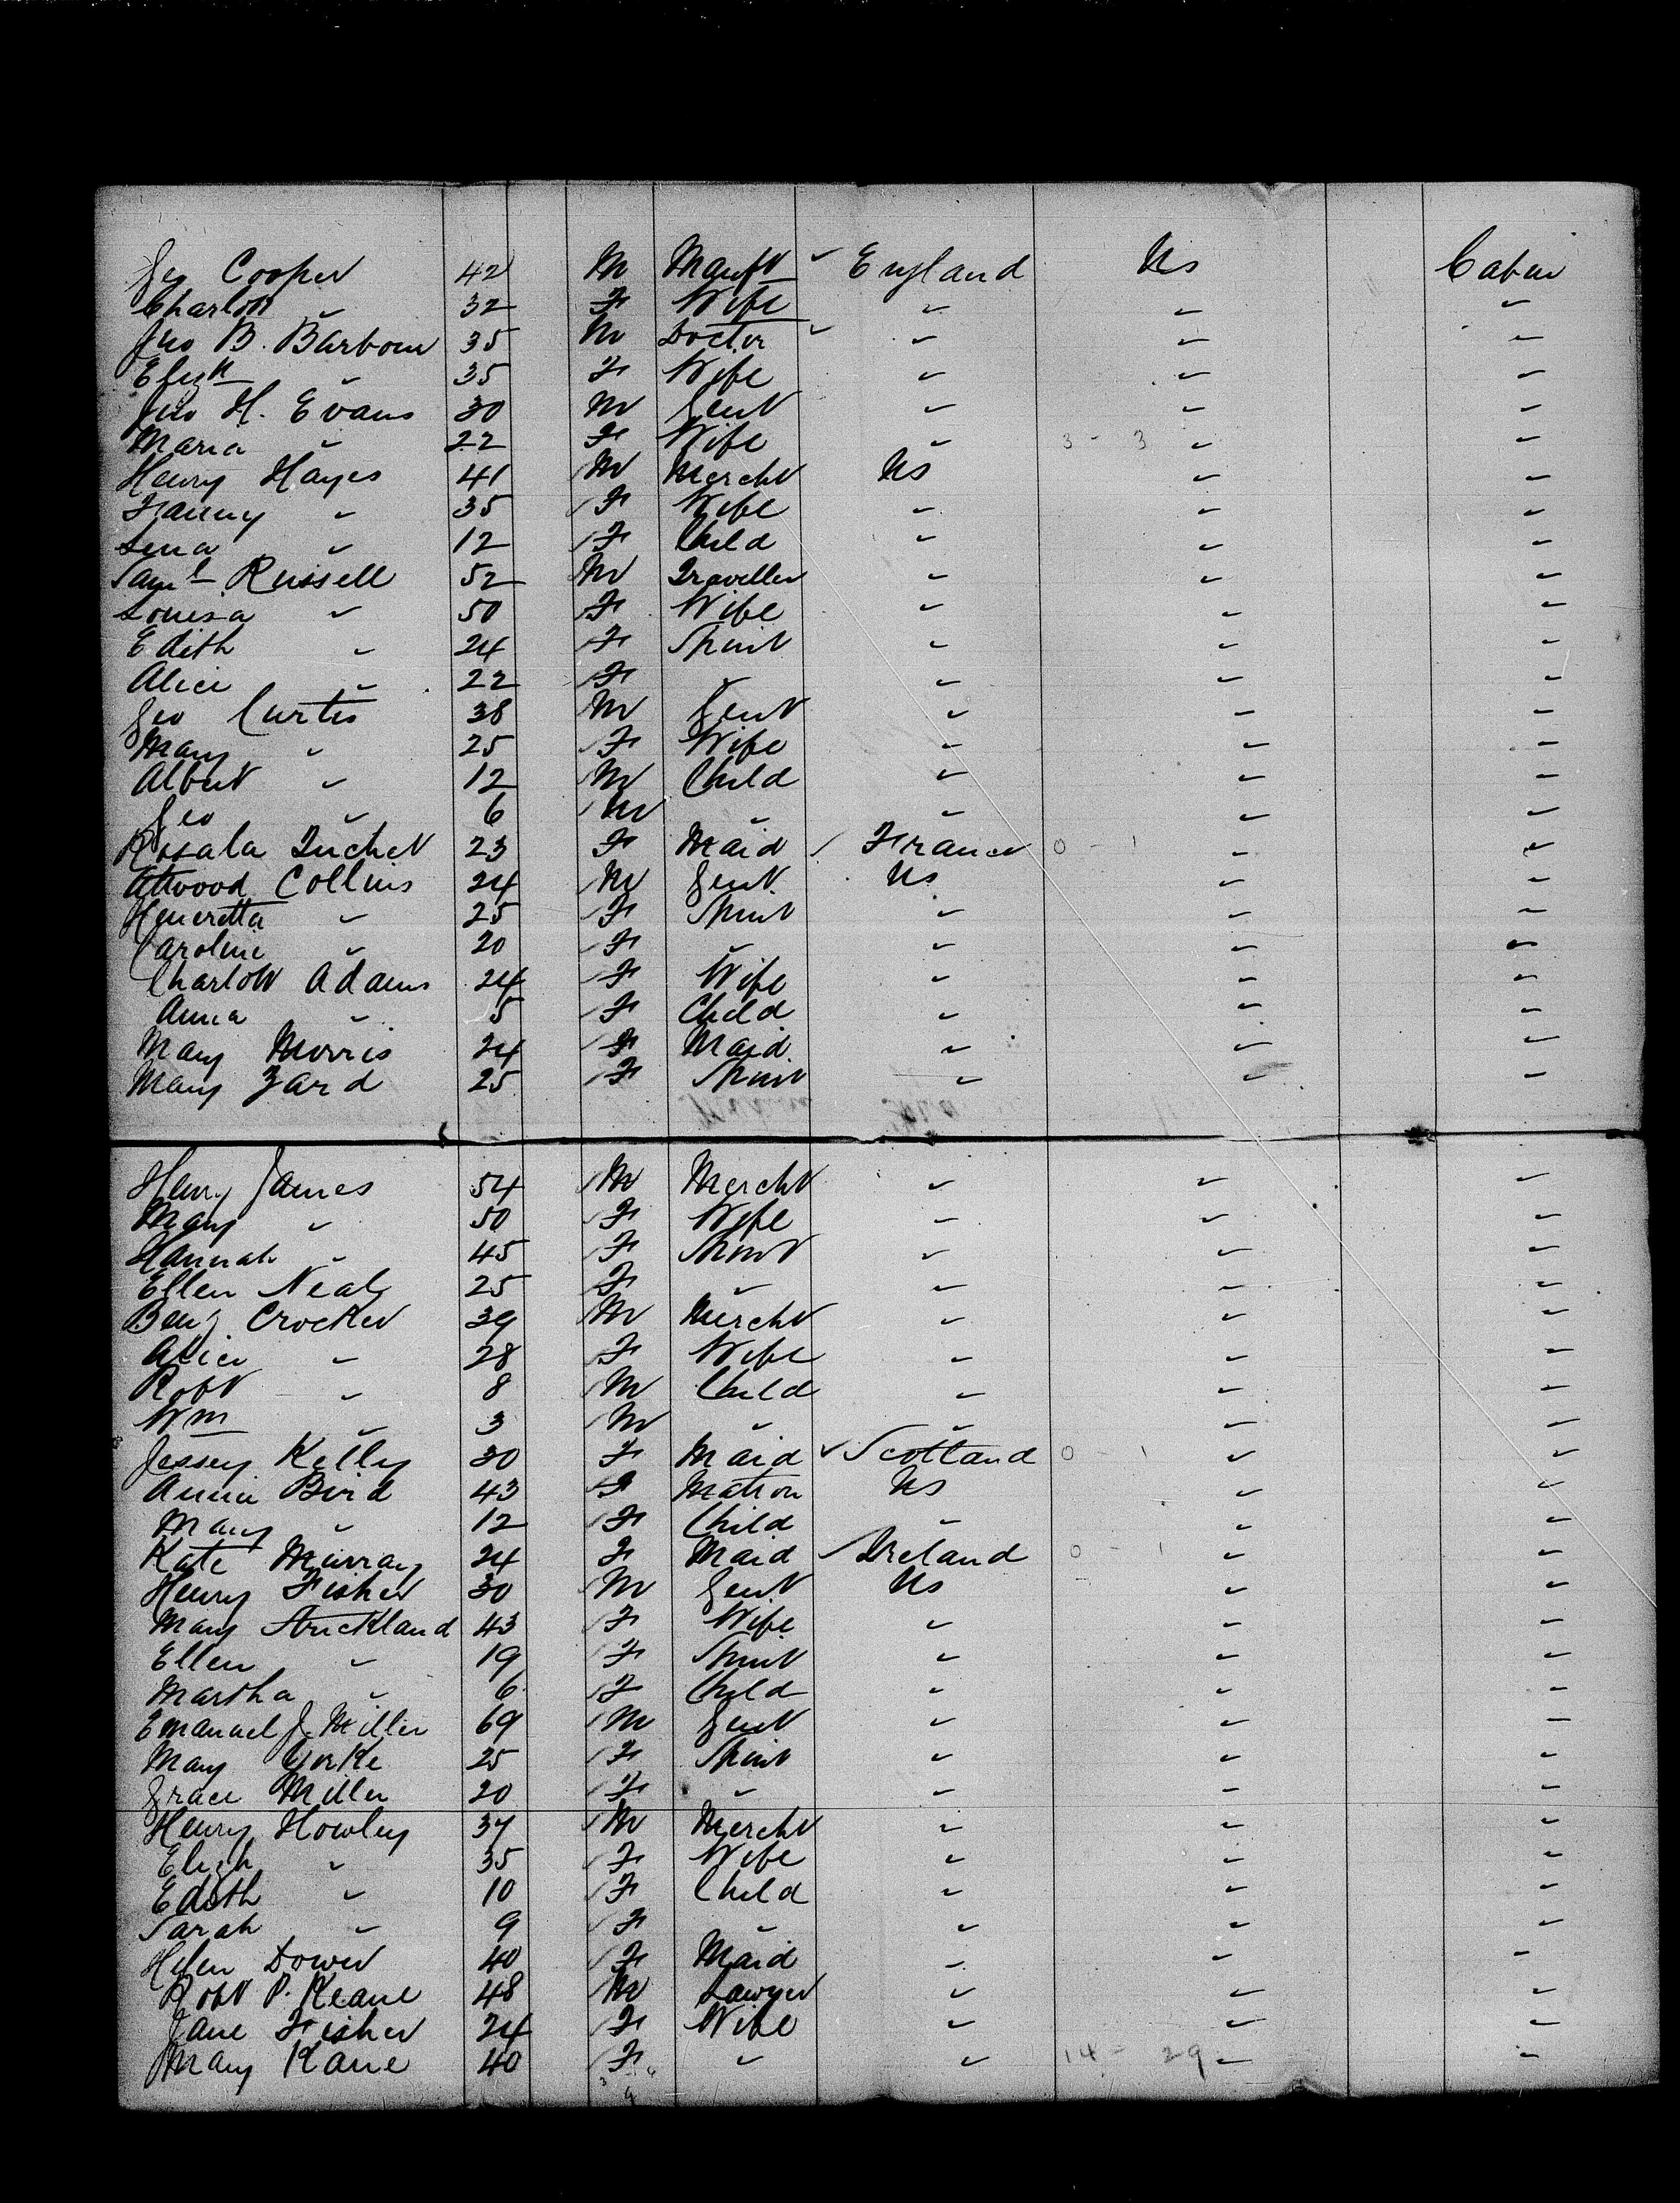 Geo Cooper 42 M Manuft ✓ England Us Cabin
Charlott " 32 F Wife " " "
Jno B. Barbour 35 M Doctor ✓ " " "
Elizh " 35 F Wife " " "
Jno H. Evans 30 M Gent " " "
Maria " 22 F Wife " 3 - 3 " "
Henry Hayes 41 M Mercht Us " "
Fanny " 35 F Wife " " "
Lena " 12 F Child " " "
Saml Russell 52 M Traveller " " "
Louisa " 50 F Wife " " "
Edith " 24 F Spinst " " "
Alice " 22 F " " " "
Geo Curtis 38 M Gent " " "
Mary " 25 F Wife " " "
Albert " 12 M Child " " "
Geo " 6 M " " " "
Rosala 23 F Maid ✓ France 0 - 1 " "
Attwood Collins 24 M Gent Us " "
Heneretta " 25 F Spinst " " "
Caroline " 20 F " " " "
Charlott Adams 24 F Wife " " "
Anna " 5 F Child " " "
Mary Morris 24 F Maid " " "
Mary Zard 25 F Spinst " " "
Henry James 54 M Mercht " " "
Mary " 50 F Wife " " "
Hannah " 45 F Spinst " " "
Ellen Nealy 25 F " " " "
Benj Crocker 39 M Mercht " " "
Alice " 28 F Wife " " "
Robt " 8 M Child " " "
Wm " 3 M " " " "
Jessey Kelly 30 F Maid ✓ Scotland 0 - 1 " "
Annie Bird 43 F Matron Us " "
Mary " 12 F Child " " "
Kate Murray 24 F Maid ✓ Ireland 0 - 1 " "
Henry Fisher 30 M Gent Us " "
Mary Strickland 43 F Wife " " "
Ellen " 19 F Spinst " " "
Martha " 6 F Child " " "
Emanuel J. Miller 69 M Gent " " "
Mary Yorke 25 F Spinst " " "
Grace Miller 20 F " " " "
Henry Howley 37 M Mercht " " "
Elizh " 35 F Wife " " "
Edith " 10 F Child " " "
Sarah " 9 F " " " "
Helen Dower 40 F Maid " " "
Robt P. Keane 48 M Lawyer " " "
Jane Fisher 24 F Wife " " "
Mary Kane 40 F " " 14 - 29 " "